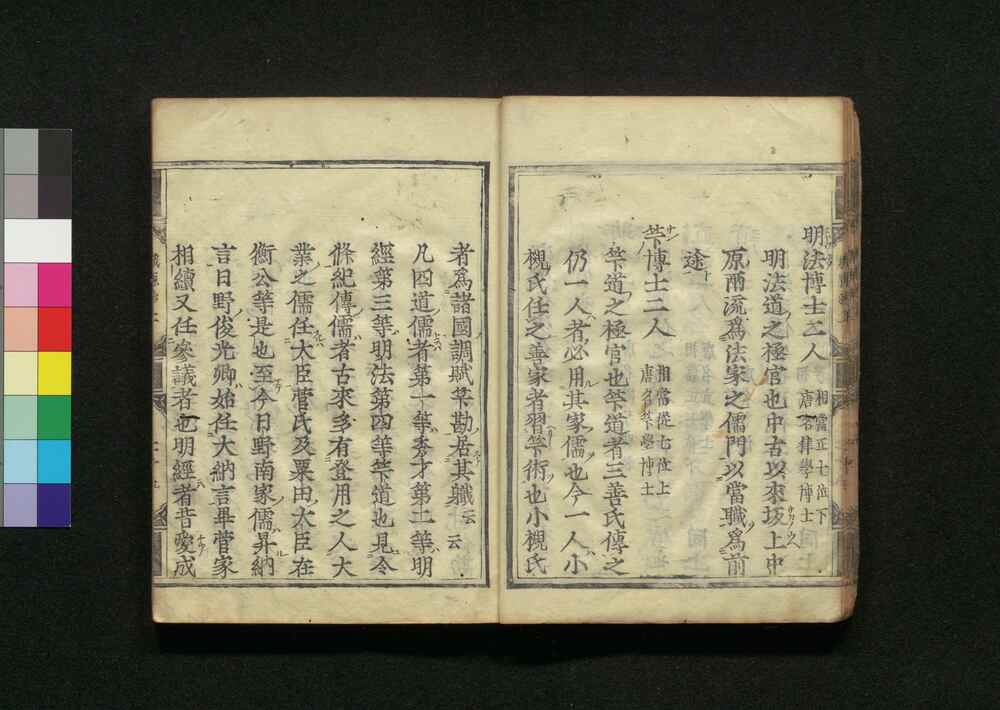 明法博士二人 相當正七位下 唐名律學博士
明法道之極官也中古以來坂上中
原兩流爲法家之儒門以當職爲前
途
竿博士二人 相當從七位上 唐名竿學博士
竿道之極官也竿道者三善氏傳之
仍一人者必用其家儒也今一人小
槻氏任之善家者習竿術也小槻氏
者爲諸國調賦竿勘居其軄云云
凡四道儒者第一等秀才第二等明
經第三等明法第四等竿道也見令
條紀傳儒者古來多有登用之人大
業之儒任大臣菅氏及粟田大臣在
衡公等是也至今日野南家儒昇納
言日野俊光卿始任大納言畢菅家
相續又任參議者也明經者昔愛成